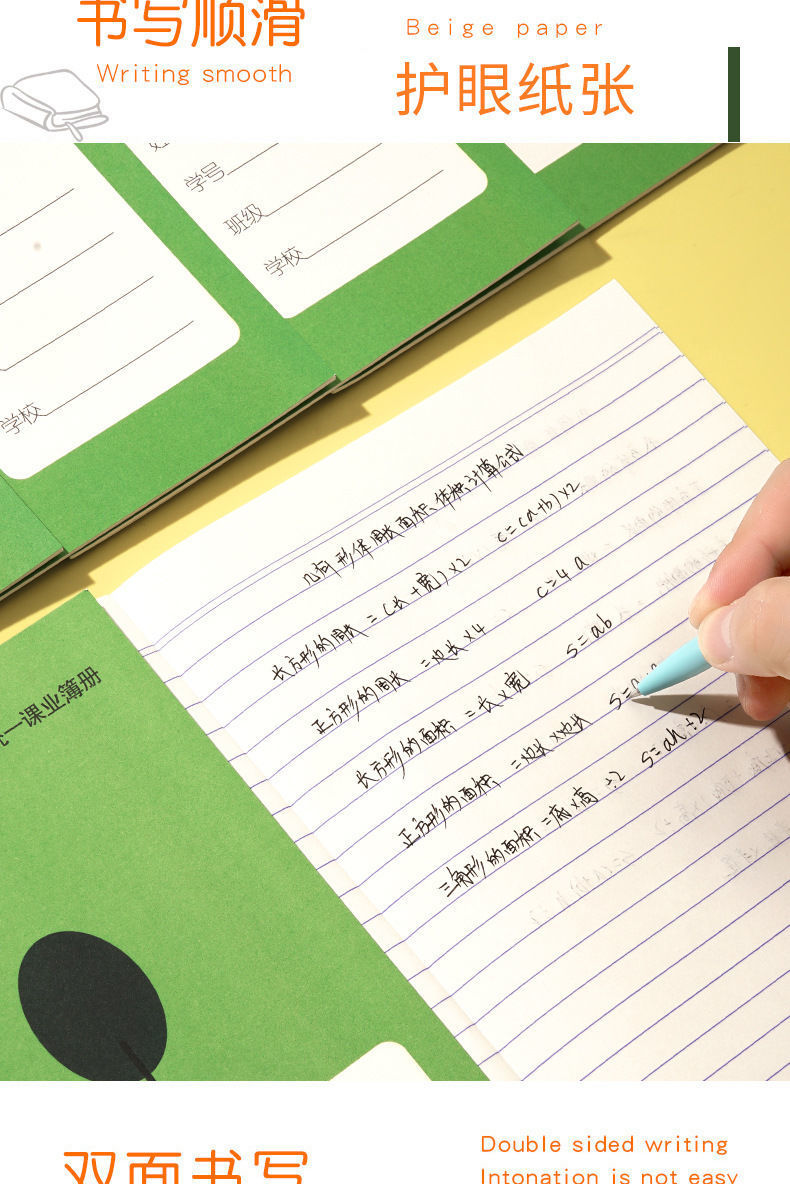 书写顺滑
Writing smooth
Beige paper
护眼纸张
学号
班级
学校
学校
几何形体周长面积、体积计算公式
长方形的周长=(长+宽)×2 C=(a+b)×2
正方形的周长=边长×4 C=4a
长方形的面积=长×宽 S=ab
正方形的面积=边长×边长 S=
三角形的面积=底×高÷2 S=ah÷2
一课业簿册
双面书写
Double sided writing
Intonation is not easy